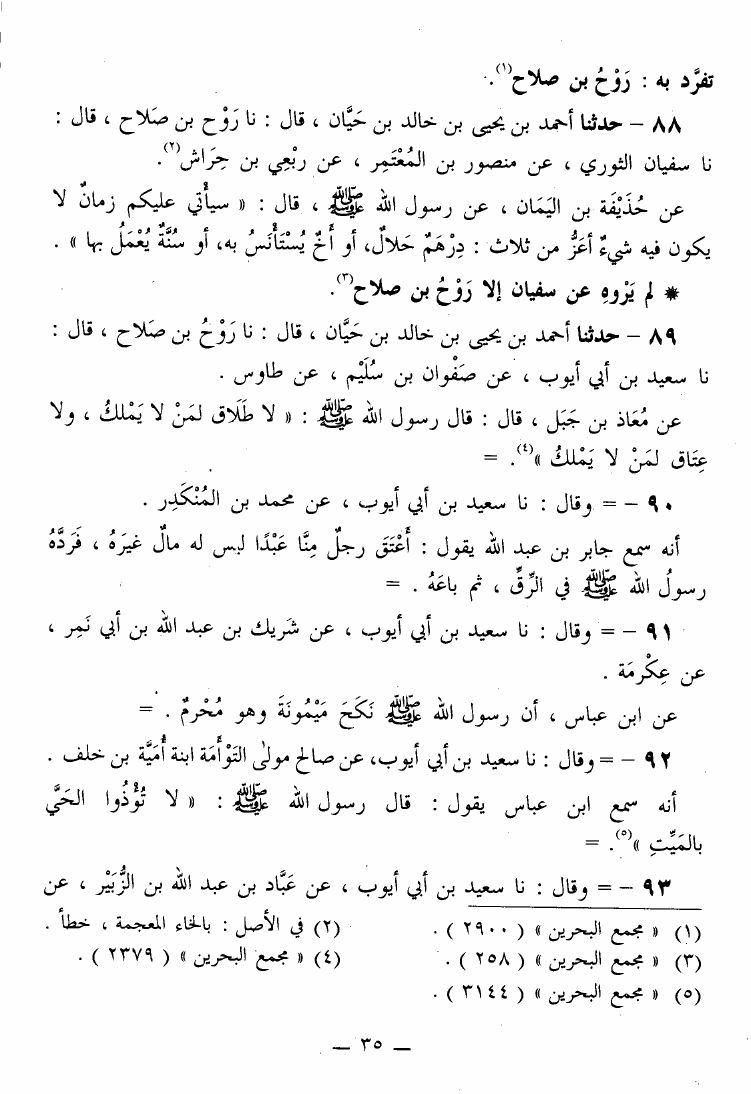 تفرَّد به : رَوْحُ بن صلاح(١).
٨٨ – حدثنا أحمد بن يحيى بن خالد بن حَيَّان ، قال : نا رَوْح بن صَلاح ، قال :
نا سفيان الثوري ، عن منصور بن المُعْتَمِر ، عن رِبْعِي بن حِرَاش(٢).
عن حُذَيْفَة بن اليَمَان ، عن رسول الله ﷺ ، قال : « سيأتي عليكم زمانٌ لا
يكون فيه شيءٌ أعَزُّ من ثلاث : دِرْهَمٌ حَلالٌ، أو أخٌ يُسْتَأْنَسُ به، أو سُنَّةٌ يُعْمَلُ بها » .
* لم يَرْوِهِ عن سفيان إلا رَوْحُ بن صلاح(٣).
٨٩ – حدثنا أحمد بن يحيى بن خالد بن حَيَّان ، قال : نا رَوْحُ بن صَلاح ، قال :
نا سعيد بن أبي أيوب ، عن صَفْوان بن سُلَيْم ، عن طاوس .
عن مُعَاذ بن جَبَل ، قال : قال رسول الله ﷺ : « لا طَلَاق لمَنْ لا يَمْلكُ ، ولا
عِتَاق لمَنْ لا يَمْلكُ »(٤). =
٩٠ – = وقال : نا سعيد بن أبي أيوب ، عن محمد بن المُنْكَدِر .
أنه سمع جابر بن عبد الله يقول : أَعْتَقَ رجلٌ مِنَّا عَبْدًا ليس له مالٌ غيرَهُ ، فَرَدَّهُ
رسولُ الله ﷺ في الرِّقِّ ، ثم باعَهُ . =
٩١ – = وقال : نا سعيد بن أبي أيوب ، عن شَريك بن عبد الله بن أبي نَمِر ،
عن عِكْرمَة .
عن ابن عباس ، أن رسول الله ﷺ نَكَحَ مَيْمُونَةَ وهو مُحْرِمٌ . =
٩٢ – = وقال : نا سعيد بن أبي أيوب، عن صالح مولى التَوْأَمَة ابنة أُمَيَّة بن خلف .
أنه سمع ابن عباس يقول : قال رسول الله ﷺ : « لا تُؤْذُوا الحَيَّ
بالمَيِّتِ »(٥). =
٩٣ – = وقال : نا سعيد بن أبي أيوب ، عن عَبَّاد بن عبد الله بن الزُّبَيْر ، عن
(١) « مجمع البحرين » ( ٢٩٠٠ ) . (٢) في الأصل : بالخاء المعجمة ، خطأ .
(٣) « مجمع البحرين » ( ٢٥٨ ) . (٤) « مجمع البحرين » ( ٢٣٧٩ ) .
(٥) « مجمع البحرين » ( ٣١٤٤ ) .
— ٣٥ —